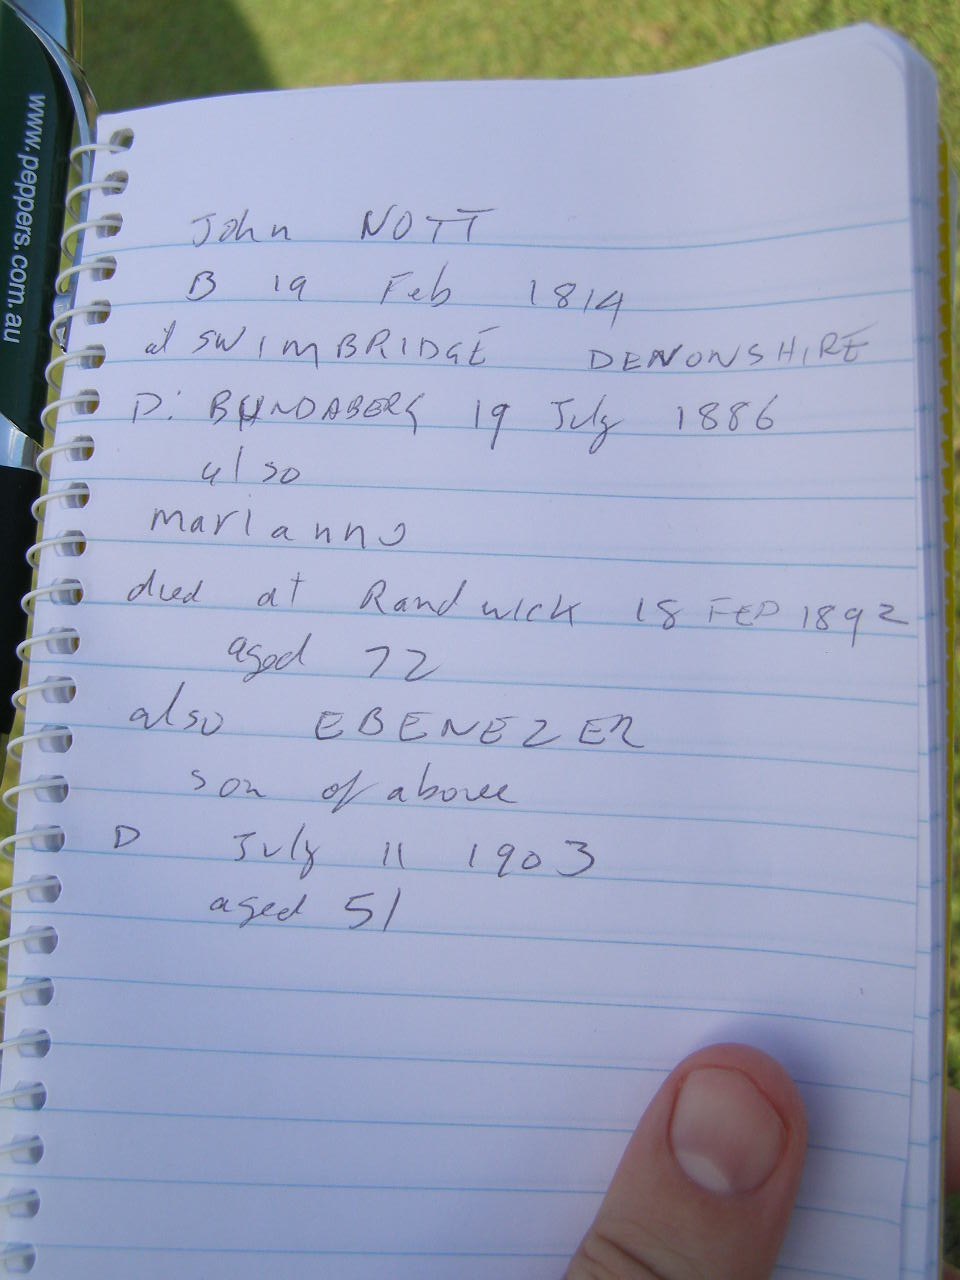 www.peppers.com.au
John NOTT
B 19 Feb 1814
at SWIMBRIDGE DENONSHIRE
D: BUNDABERG 19 July 1886
also
marianno
died at Randwick 18 FEB 1892
aged 72
also EBENEZER
son of above
D July 11 1903
aged 51